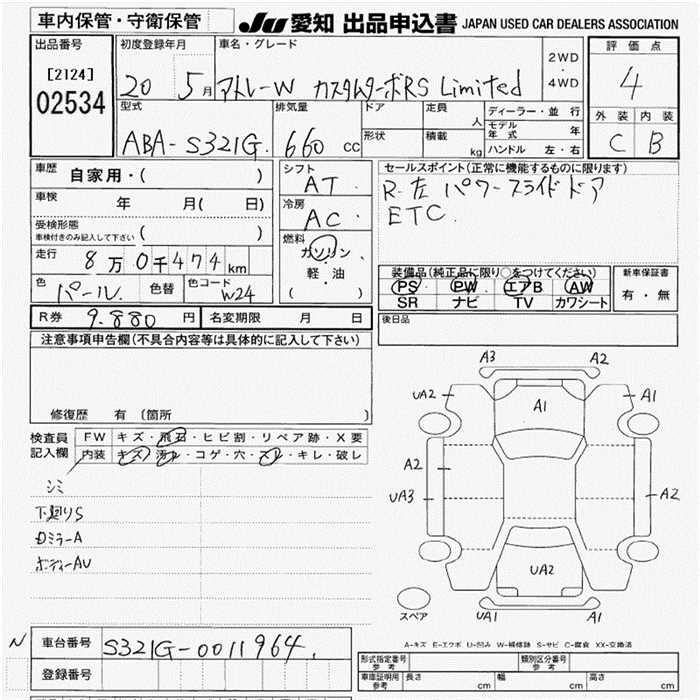 車内保管・守衛保管
JU 愛知 出品申込書 JAPAN USED CAR DEALERS ASSOCIATION
出品番号
[2124]
02534
初度登録年月
20 5月
車名・グレード
アトレーW カスタムターボRS Limited
2WD
・
4WD
評価点
4
外装 内装
C B
型式
ABA-S321G
排気量
660 cc
ドア
形状
定員
人
積載
kg
ディーラー・並行
モデル年式 年
ハンドル 左・右
車歴
自家用・( )
車検
年 月( 日)
受検形態
車検付きのみ記入して下さい ( )
走行
8万0千474km
色
パール
色替
色コード
W24
シフト
AT
冷房
AC
燃料
ガソリン
・
軽・油
( )
セールスポイント(正常に機能するものに限ります)
R-左 パワースライドドア
ETC
装備品(純正品に限り○をつけてください)
PS PW エアB AW
SR ナビ TV カワシート
新車保証書
有・無
R券 9.880 円 名変期限 月 日
後日品
注意事項申告欄(不具合内容等は具体的に記入して下さい)
修復歴 有 〔箇所 〕
検査員
記入欄
FW キズ・飛石・ヒビ割・リペア跡・X要
内装 キズ・汚れ・コゲ・穴・スレ・キレ・破レ
シミ
下廻りS
Dミラー A
ボディーAU
A3 A2
UA2 A1 A1
A2
UA3 A2
UA2
スペア
UA1 A1
A-キズ E-エクボ U-凹み W-補修跡 S-サビ C-腐食 XX-交換済
N 車台番号 S321G-0011964
登録番号
形式指定番号
参考
類別区分番号
参考
車庫証明用
参考
長さ cm 幅 cm 高さ cm